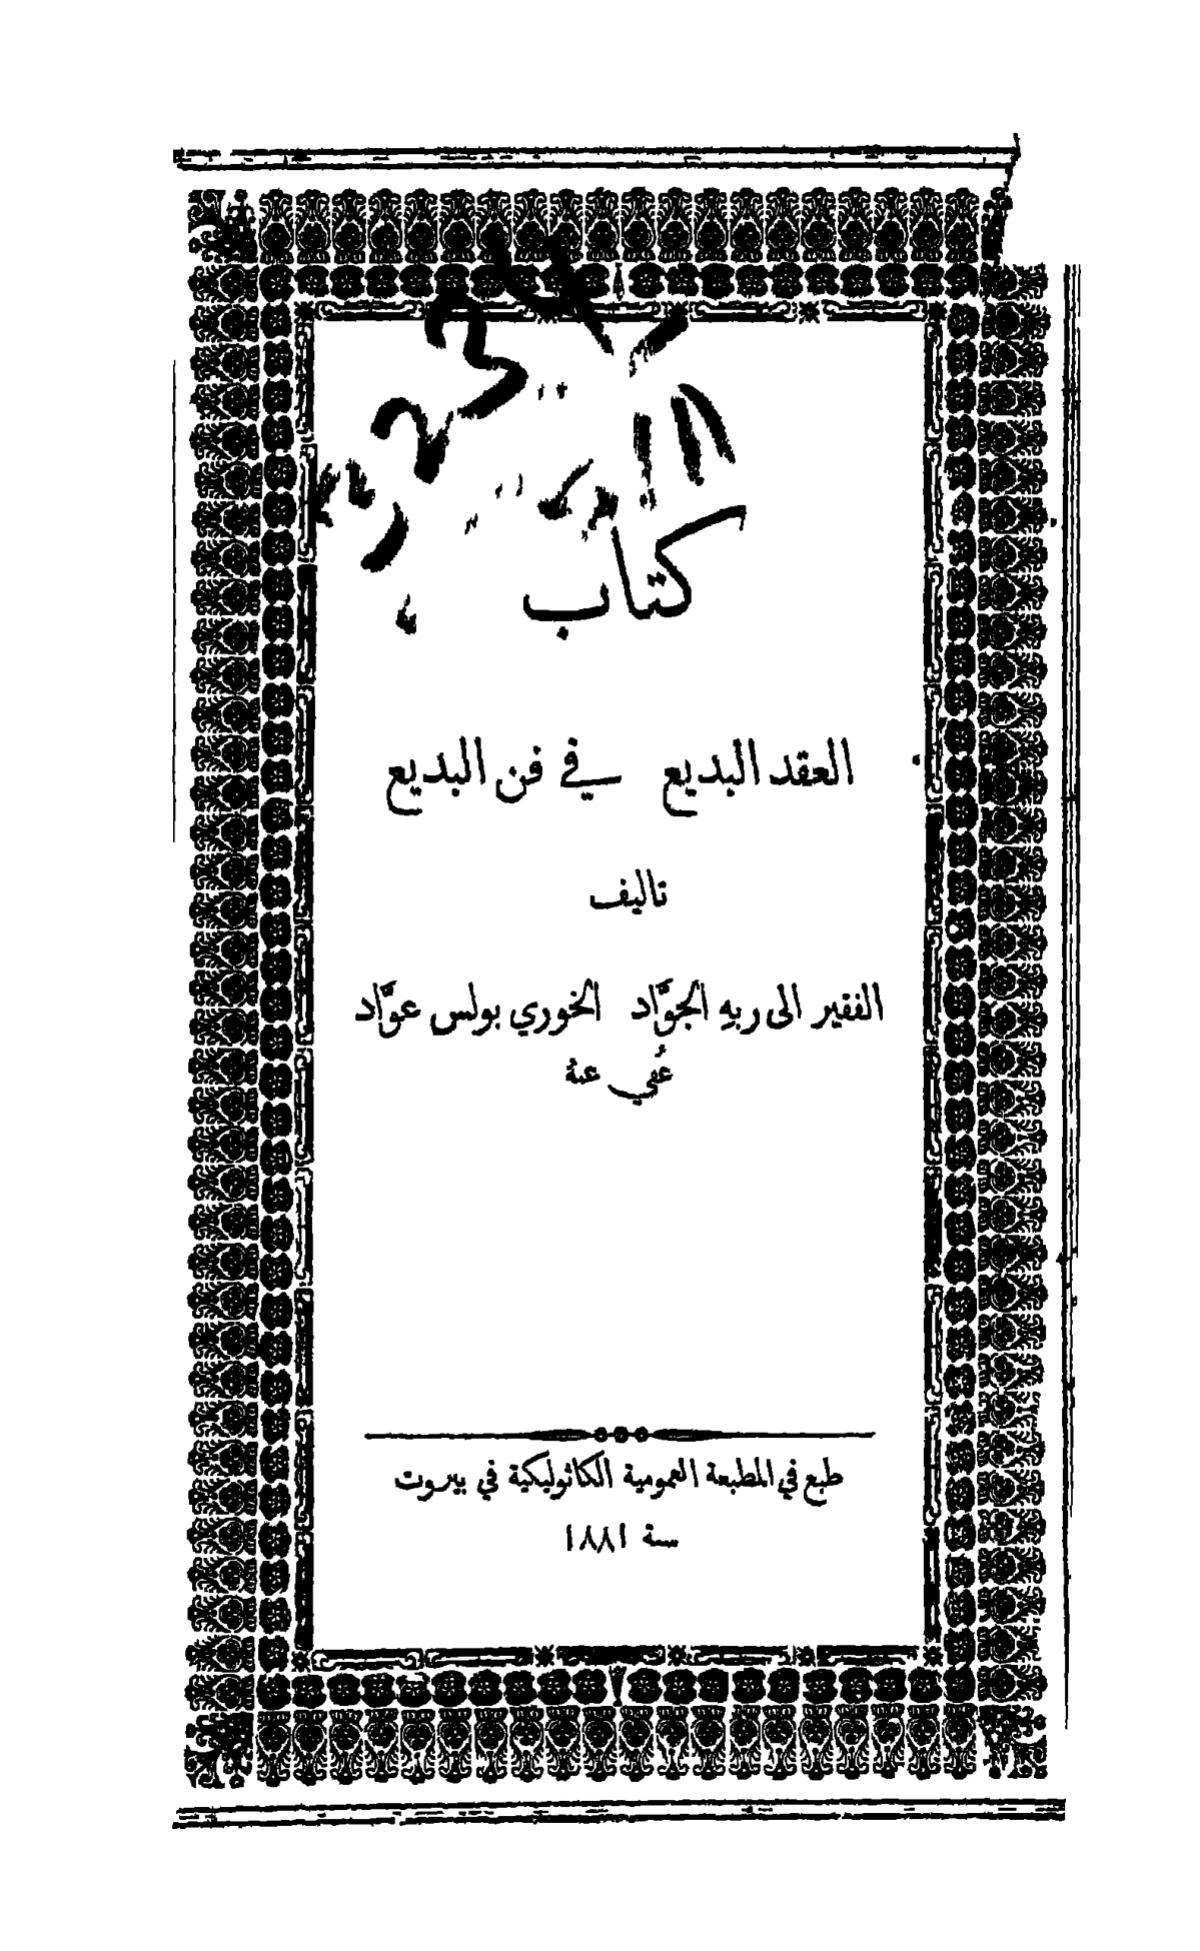 كتاب
العقد البديع في فن البديع
تاليف
الفقير الى ربهِ الجوَّاد الخوري بولس عوَّاد
عُفي عنهُ
طبع في المطبعة العمومية الكاثوليكية في بيروت
سنة ١٨٨١